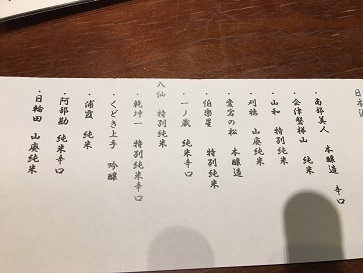 日本酒
・南部美人 本醸造 辛口
・会津磐梯山 純米
・山和 特別純米
・刈穂 山廃純米
・愛宕の松 本醸造
・伯楽星 特別純米
・一ノ蔵 純米辛口
八仙 特別純米
・乾坤一 特別純米辛口
・くどき上手 吟醸
・浦霞 純米
・阿部勘 純米辛口
・日輪田 山廃純米